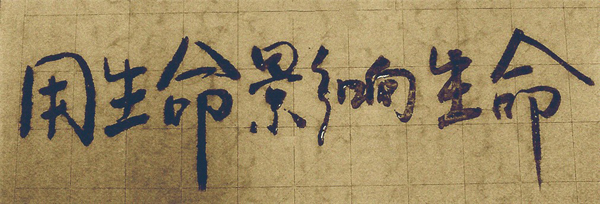 用生命影响生命